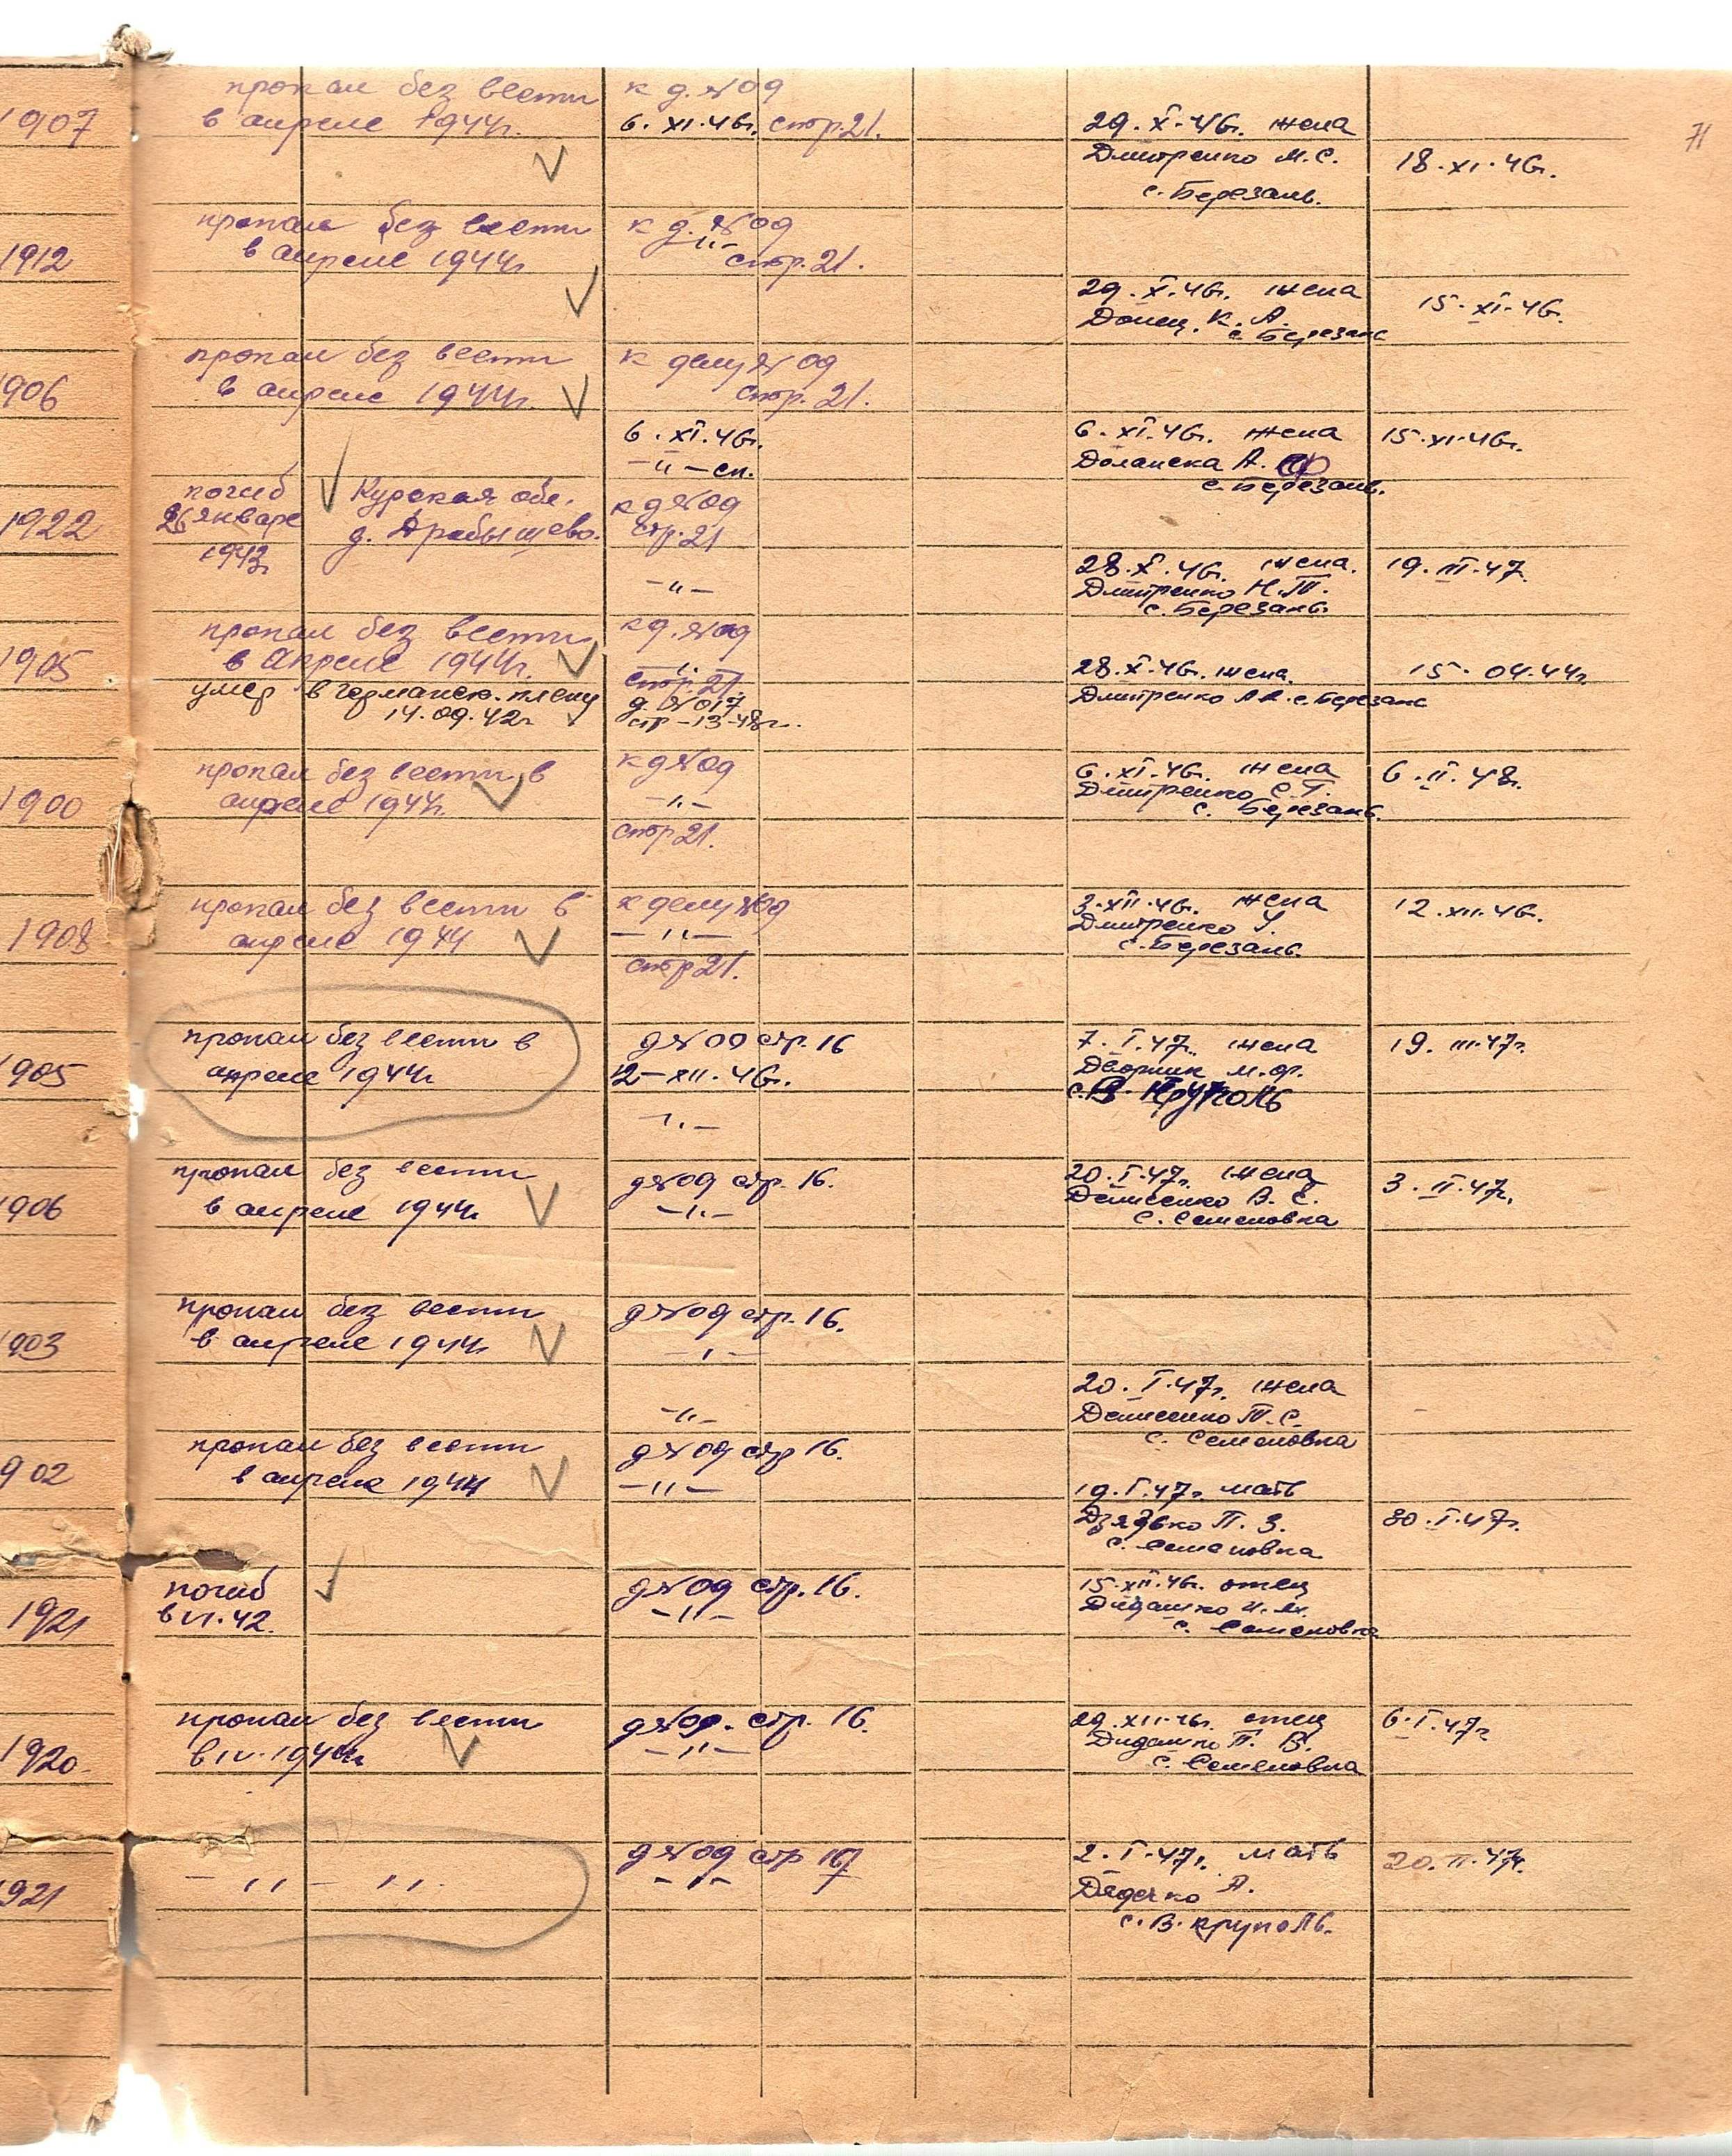 71
1907
пропал без вести
в апреле 1944г.
к д. №09
6. XI.46г. стр.21.
29. X.46г. жена
Дмитренко М.С.
с. Березань.
18.XI.46г.
1912
пропал без вести
в апреле 1944г
к д. №09
-"-
стр. 21.
29. X.46г. жена
Донец. К. А.
с. Березань
15.XI.46г.
906
пропал без вести
в апреле 1944г.
к делу № 09
стр. 21.
6. XI.46г.
-"- сп.
6. XI.46г. жена
А. Ф
с. Березань.
15.XI.46г.
1922
погиб
26 января
1943г
Курская обл.
д.
к д №09
стр. 21
-"-
28.X.46г. жена.
Дмитренко Н.Т.
с. Березань.
19. III.47.
1905
пропал без вести
в Апреле 1944г.
умер в германск. плену
14.09.42г
к д. №09
-"-
стр. 21
д. №017
стр-13-48г.
28.X.46г. жена.
Дмитренко с. Березань
15. 04.44г.
1900
пропал без вести в
апреле 1944г.
к д №09
-"-
стр 21.
6.XI.46г. жена
Дмитренко С.Т.
с. Березань.
6. II. 48г.
1908
пропал без вести в
апреле 1944
к делу №09
-"-
стр 21.
3.XII.46г. жена
Дмитренко У.
с. Березань.
12.XII.46г.
905
пропал без вести в
апреле 1944г
д №09 стр. 16
12-XII.46г.
-"-
7. I.47г. жена
Дворник М.Ф.
с. В. Круполь
19. III.47г.
906
пропал без вести
в апреле 1944г
д №09 стр. 16.
-"-
20.I.47г. жена
Денисенко В. С.
с. Семеновка
3. II.47г.
903
пропал без вести
в апреле 1944г
д №09 стр. 16.
-"-
20. I.47г. жена
Денисенко Т.С.
с. Семеновка
-"-
902
пропал без вести
в апреле 1944
д №09 стр 16.
-"-
19.I.47г. мать
Дзядько П. З.
с. Семеновка
30.I.47г.
1921
погиб
в VI.42.
д №09 стр. 16.
-"-
15.XII.46г. отец
с. Семеновка
1920
пропал без вести
в IV.1944г
д №09. стр. 16.
-"-
29.XII.46г. отец
П. В.
с. Семеновка
6.I.47г
921
-"- "
д №09 стр 16
-"-
2.I.47г. мать
А.
с. В. Круполь.
20.II.47г.